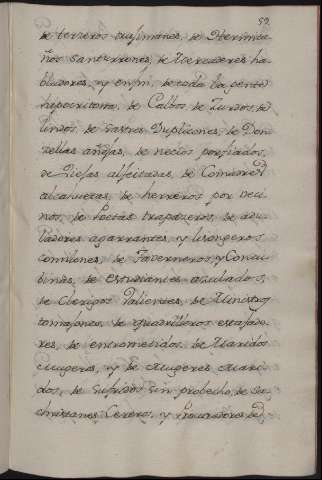 59.
de terzeros trasimanes, de Hermita
ños santurrones, de Mercaderes ha
bladores, y enfin, de toda la gente
hipocritona, de Calbos, de Zurdos, de
lindos, de sastres Suplicones, de Don
zellas añejas, de necios porfiados,
de Viejas afeitadas, de Comadres
alcahuetas, de herreros por veci
nos, de Poetas trapazeros, de adu
ladores agarrantes, y lisongeros
comilones, de Taverneros, y Concu
binas, de estudiantes azulados,
de Clerigos Valientes, de Ministros
de quadrilleros estafado
res, de entremetidos, de Maridos
mugeres, y de Mugeres mari
dos, de sufridos sin probecho, de Sa
christanes Cereros, y Procuradores de